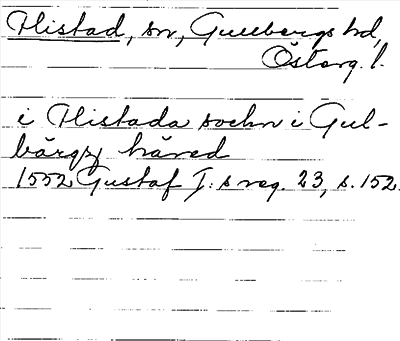 Flistad, sn, Gullbergs hd,
Österg. l.
i Flistada sochn i Gul-
bärgz häred
1552 Gustaf I:s reg. 23, s. 152.